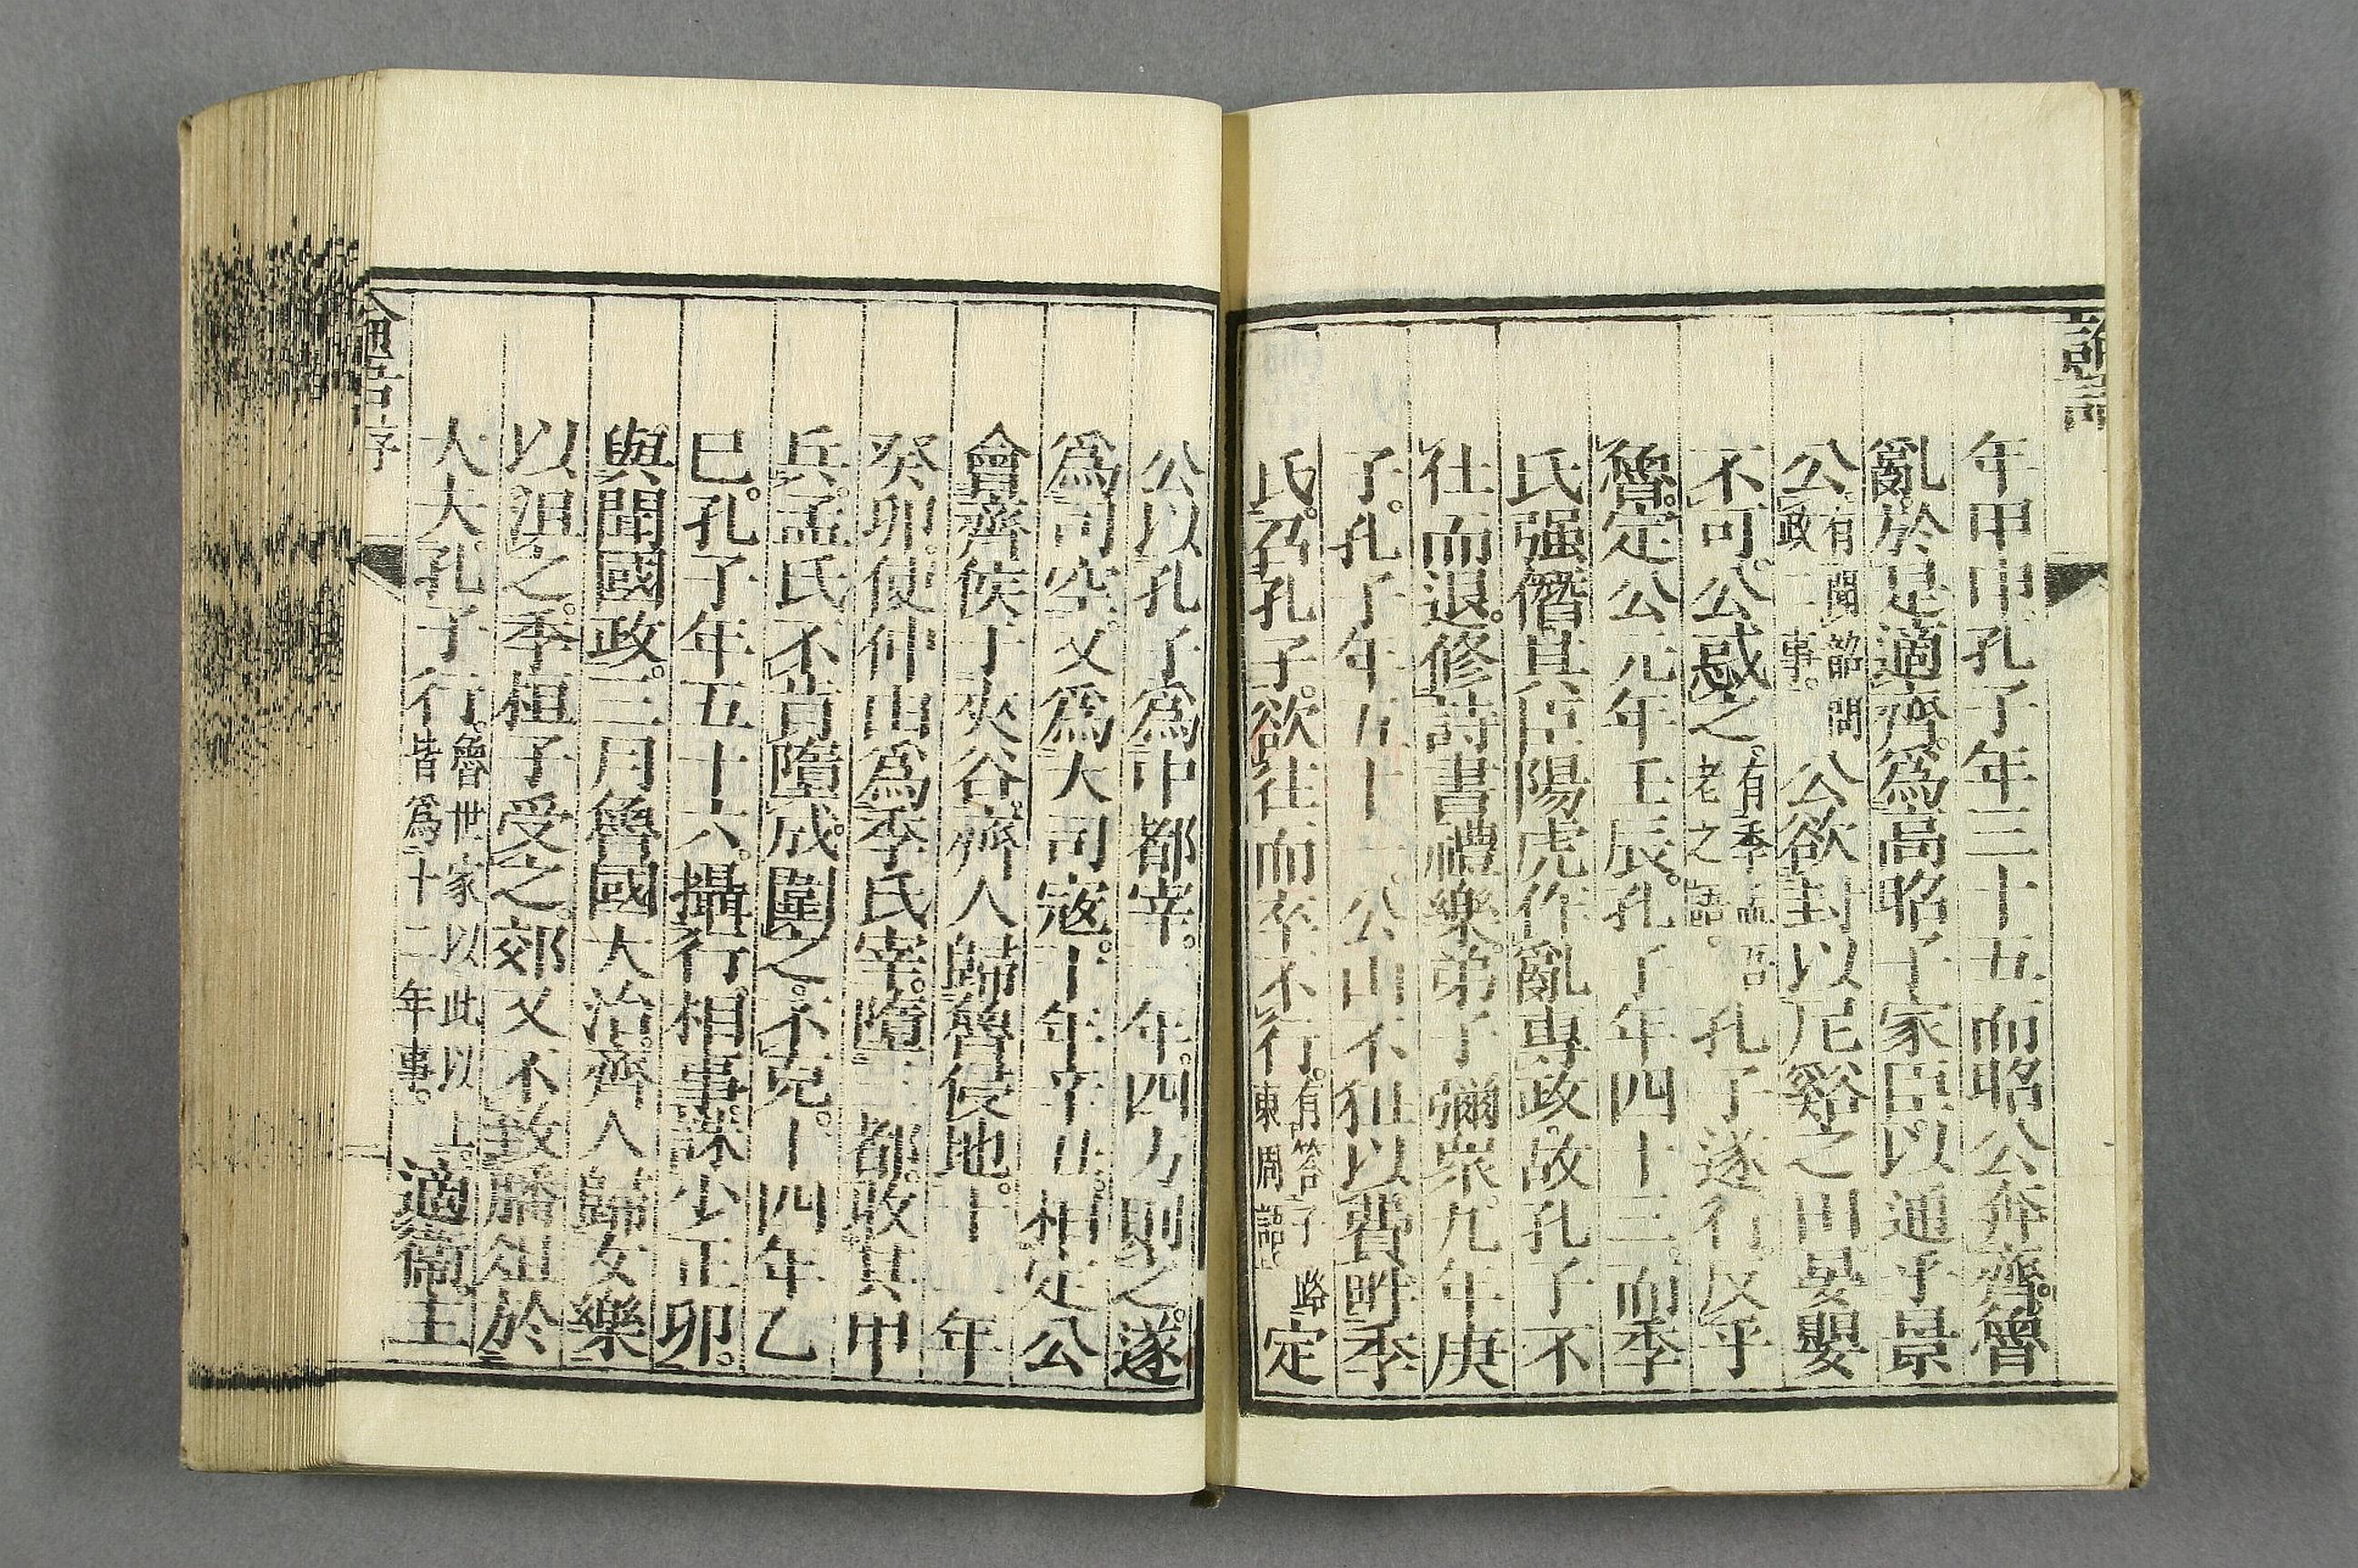 年甲申孔子年三十五而昭公奔齊。魯
亂。於是適齊。爲高昭子家臣。以通乎景
公。有聞韶問政二事。公欲封以尼谿之田。晏嬰
不可。公惑之。有季孟吾老之語。孔子遂行。反乎
魯。定公元年壬辰。孔子年四十三。而季
氏强僭。其臣陽虎作亂專政。故孔子不
仕而退。修詩書禮樂。弟子彌衆。九年庚
子。孔子年五十一。公山不狃以費畔季
氏。召孔子。欲往而卒不行。有答子路東周語。定
公以孔子爲中都宰。一年。四方則之。遂
爲司空。又爲大司寇。十年辛丑。相定公
會齊侯于夾谷。齊人歸魯侵地。十二年
癸卯。使仲由爲季氏宰。隳三都。收其甲
兵。孟氏不肯隳成。圍之。不克。十四年乙
巳。孔子年五十六。攝行相事。誅少正卯。
與聞國政。三月魯國大治。齊人歸女樂
以沮之。季桓子受之。郊又不致膰俎於
大夫。孔子行。魯世家以此以上。皆爲十二年事。適衛。主
論語序